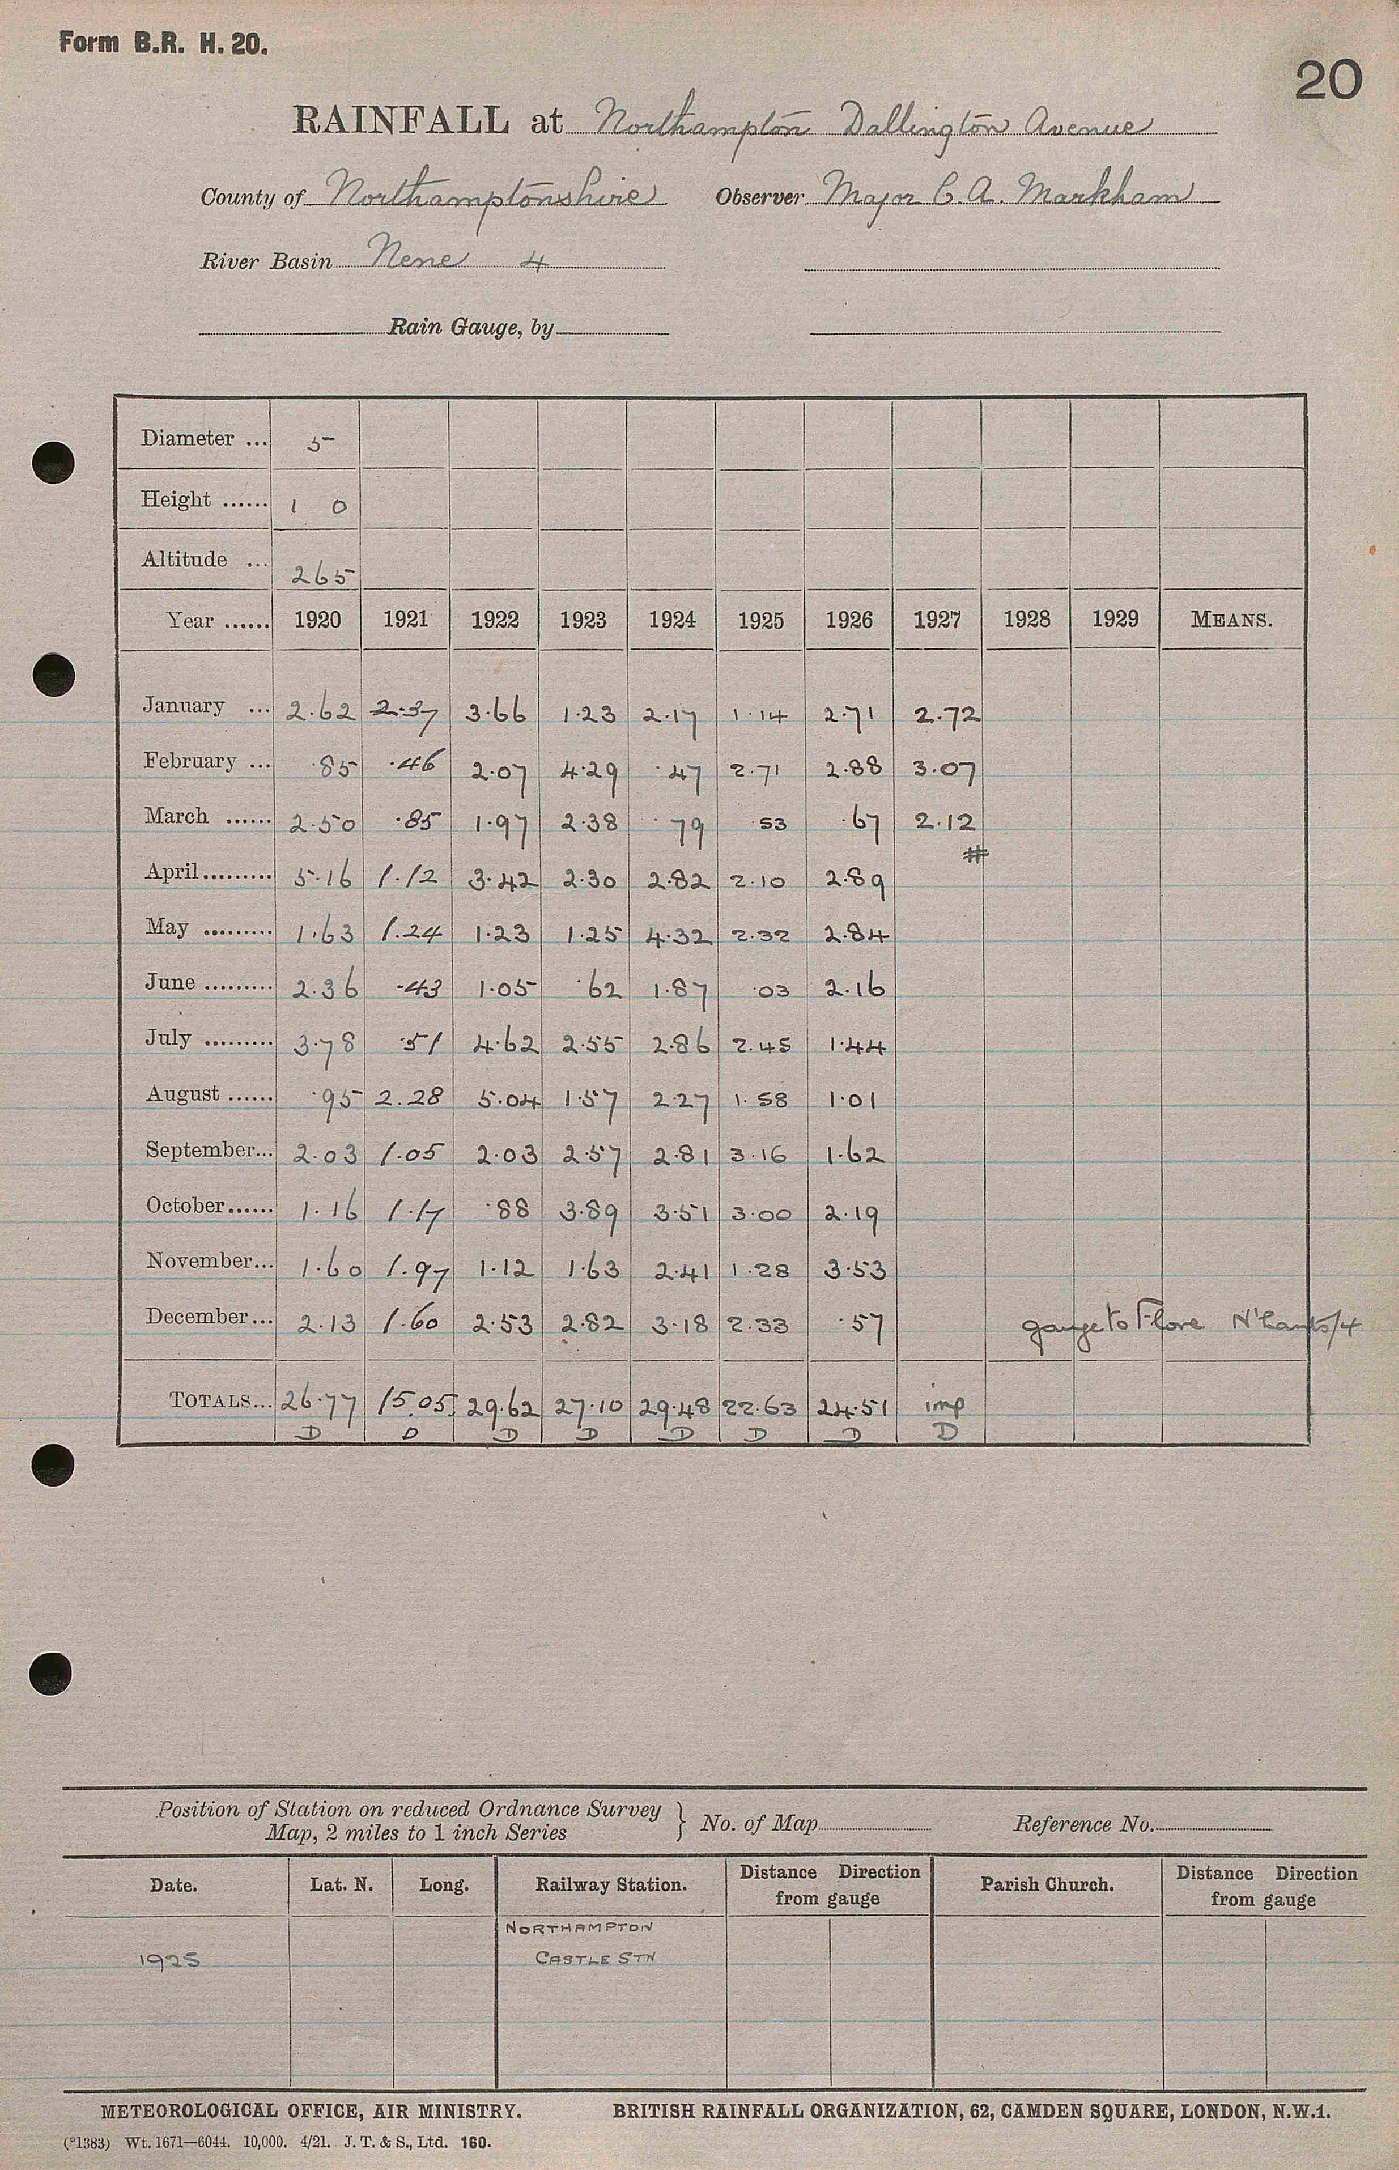 Form B.R. H. 20.
20
RAINFALL at Northampton Dallington Avenue
County of Northamptonshire Observer Major C. A. Markham
River Basin Nene 4
Rain Gauge, by
Diameter ... 5
Height ...... 1 0
Altitude ... 265
Year ...... 1920 1921 1922 1923 1924 1925 1926 1927 1928 1929 MEANS.
January ... 2.62 2.37 3.66 1.23 2.17 1.14 2.71 2.72
February ... .85 .46 2.07 4.29 .47 2.71 2.88 3.07
March ...... 2.50 .85 1.97 2.38 .79 .53 .67 2.12
#
April......... 5.16 1.12 3.42 2.30 2.82 2.10 2.89
May ......... 1.63 1.24 1.23 1.25 4.32 2.32 2.84
June ......... 2.36 .43 1.05 .62 1.87 .03 2.16
July ......... 3.78 .51 4.62 2.55 2.86 2.45 1.44
August ...... .95 2.28 5.04 1.57 2.27 1.58 1.01
September... 2.03 1.05 2.03 2.57 2.81 3.16 1.62
October...... 1.16 1.17 .88 3.89 3.51 3.00 2.19
November... 1.60 1.97 1.12 1.63 2.41 1.28 3.53
December... 2.13 1.60 2.53 2.82 3.18 2.33 .57 gauge to Flore N'hants/4
TOTALS... 26.77 15.05 29.62 27.10 29.48 22.63 24.51 imp
D D D D D D D D
Position of Station on reduced Ordnance Survey
Map, 2 miles to 1 inch Series } No. of Map Reference No.
Date. Lat. N. Long. Railway Station. Distance Direction from gauge Parish Church. Distance Direction from gauge
NORTHAMPTON
1925 CASTLE STN
METEOROLOGICAL OFFICE, AIR MINISTRY. BRITISH RAINFALL ORGANIZATION, 62, CAMDEN SQUARE, LONDON, N.W.1.
(*1383) Wt. 1671—6044. 10,000. 4/21. J. T. & S., Ltd. 160.